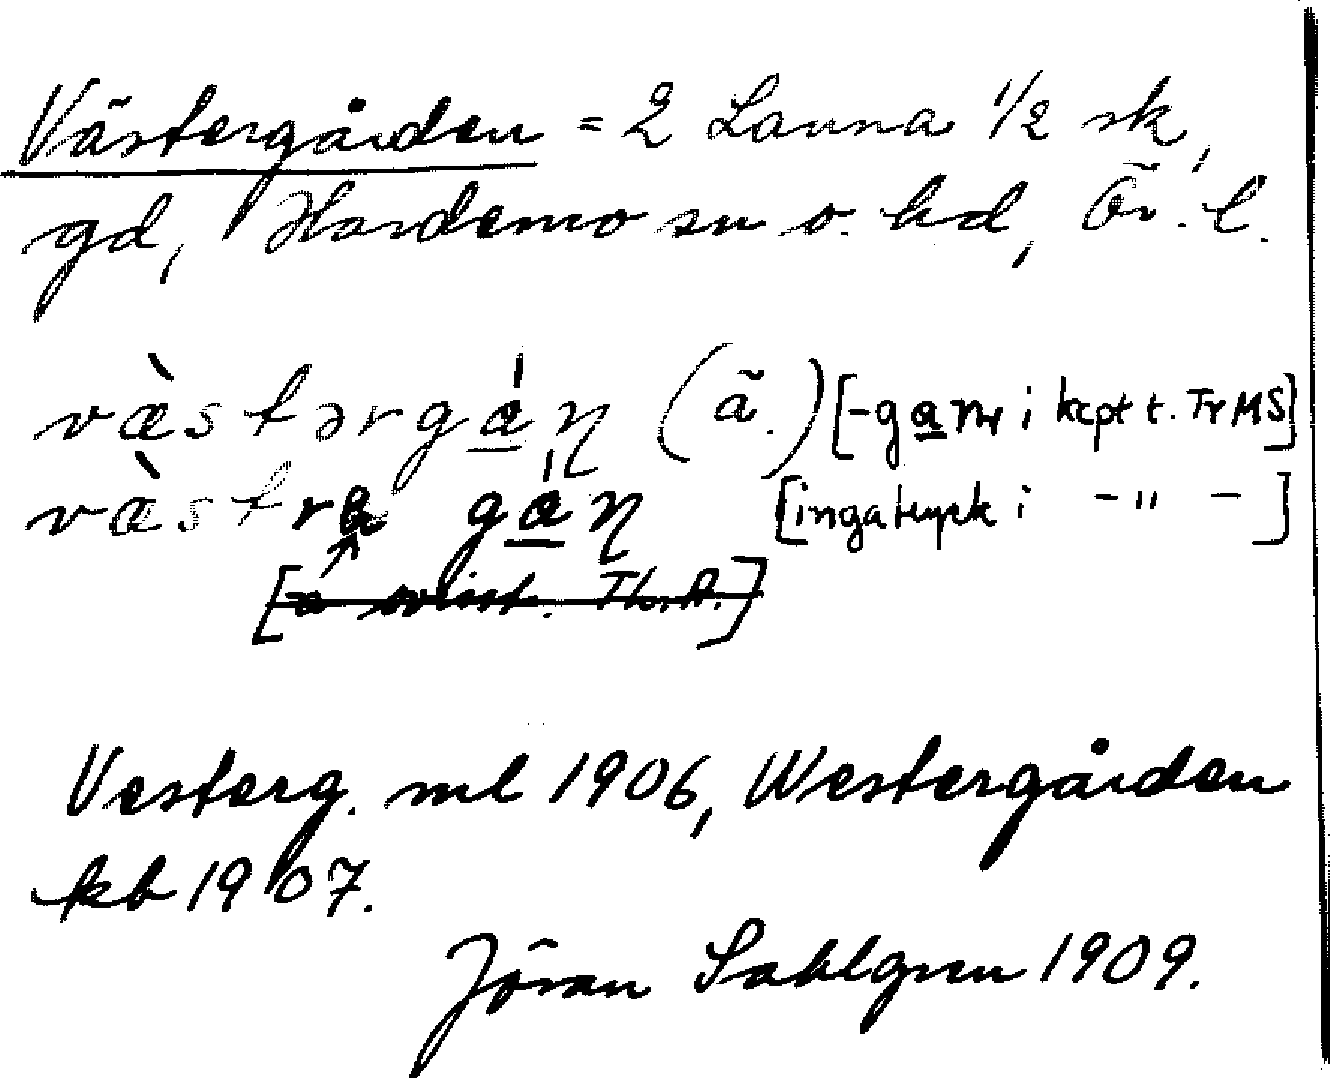 Västergården = 2 Lanna 1/2 sk,
gd, Hardemo sn o. hd, Ör. l.
væ̀stərgá̱n̥ (ä.) [-ga̱nr i kcpt t. Tr MS]
væ̀stra gá̱n̥ [inga tryck i -"-]
Vesterg. ml 1906, Westergården
kb 1907.
Jöran Sahlgren 1909.